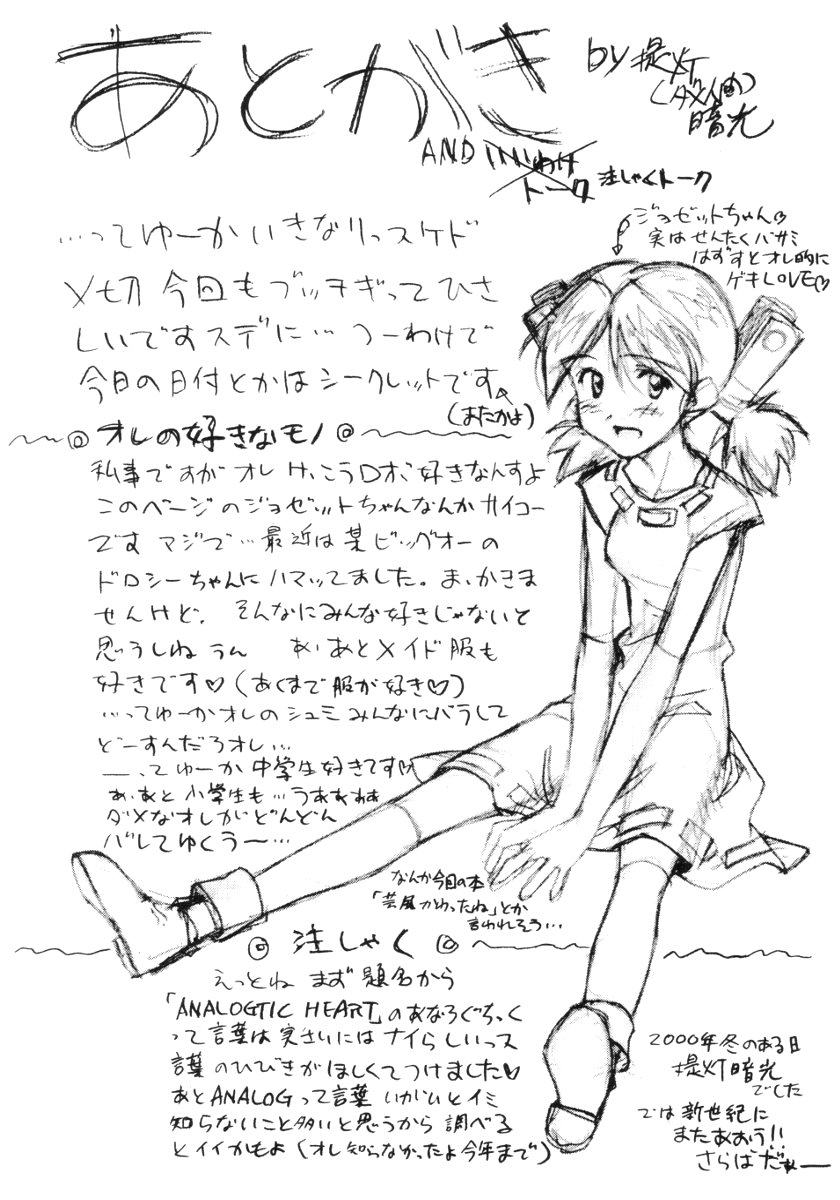 あとがき
by 提灯
(ダメ人間)
暗光
AND いいわけ
トーク 注しゃくトーク
ジョゼットちゃん♡
実はせんたくバサミ
はずすとオレ的に
ゲキLOVE♡
…ってゆーかいきなりっスケド
〆切今回もブッチギってひさ
しいですスデに… つーわけで
今日の日付とかはシークレットです
(またかよ)
◎オレの好きなモノ◎
私事ですがオレけっこうロボ好きなんすよ
このページのジョゼットちゃんなんかサイコー
です マジで…最近は某ビッグオーの
ドロシーちゃんにハマッてました。ま、かきま
せんけど。 そんなにみんな好きじゃないと
思うしね うん あ、あとメイド服も
好きです♡(あくまで服が好き♡)
…ってゆーかオレのシュミみんなにバラして
どーすんだろオレ…
ー、てゆーか中学生好きです♡
あ、あと小学生も…うあぁぁぁ
ダメなオレがどんどん
バレてゆくうー…
なんか今回の本
「芸風かわったね」とか
言われそう…
◎ 注しゃく ◎
えっとね まず題名から
「ANALOGTIC HEART」のあなろぐちっく
って言葉は実さいにはナイらしいっス
言葉のひびきがほしくてつけました♡
あとANALOGって言葉いがいとイミ
知らないこと多いと思うから調べる
とイイかもよ(オレ知らなかったよ今年まで)
2000年冬のある日
提灯暗光
でした
では新世紀に
またあおう!!
さらばだぁー